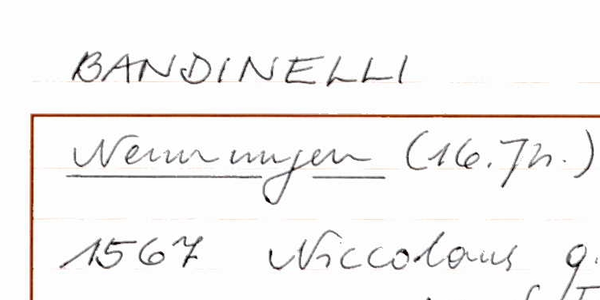 BANDINELLI
Nennungen (16. Jh.)
1567 Niccolaus q.